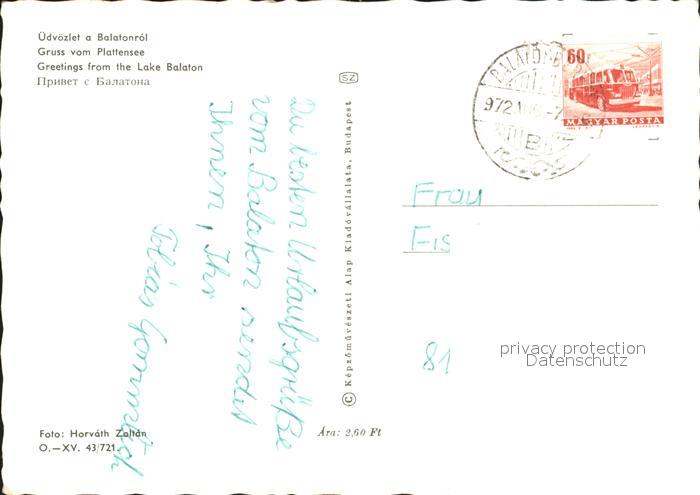 Üdvözlet a Balatonról
Gruss vom Plattensee
Greetings from the Lake Balaton
Привет с Балатона
SZ
60
MAGYAR POSTA
Die besten Urlaubsgrüße
vom Balaton sendet
Ihnen, Ihr
Tobias
Frau
Eis
81
privacy protection
Datenschutz
© Képzőművészeti Alap Kiadóvállalata, Budapest
Foto: Horváth Zoltán
O.—XV. 43/721.
Ára: 2,60 Ft